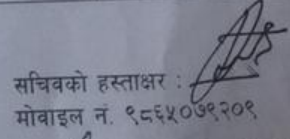 सचिवको हस्ताक्षर :
मोवाइल नं. ९८६५०७१२०९